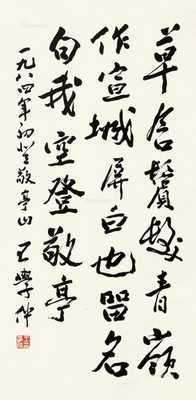 草含鬢髮青嶺
作宣城屏白也留名
句我空登敬亭
一九八四年初登敬亭山 王學仲